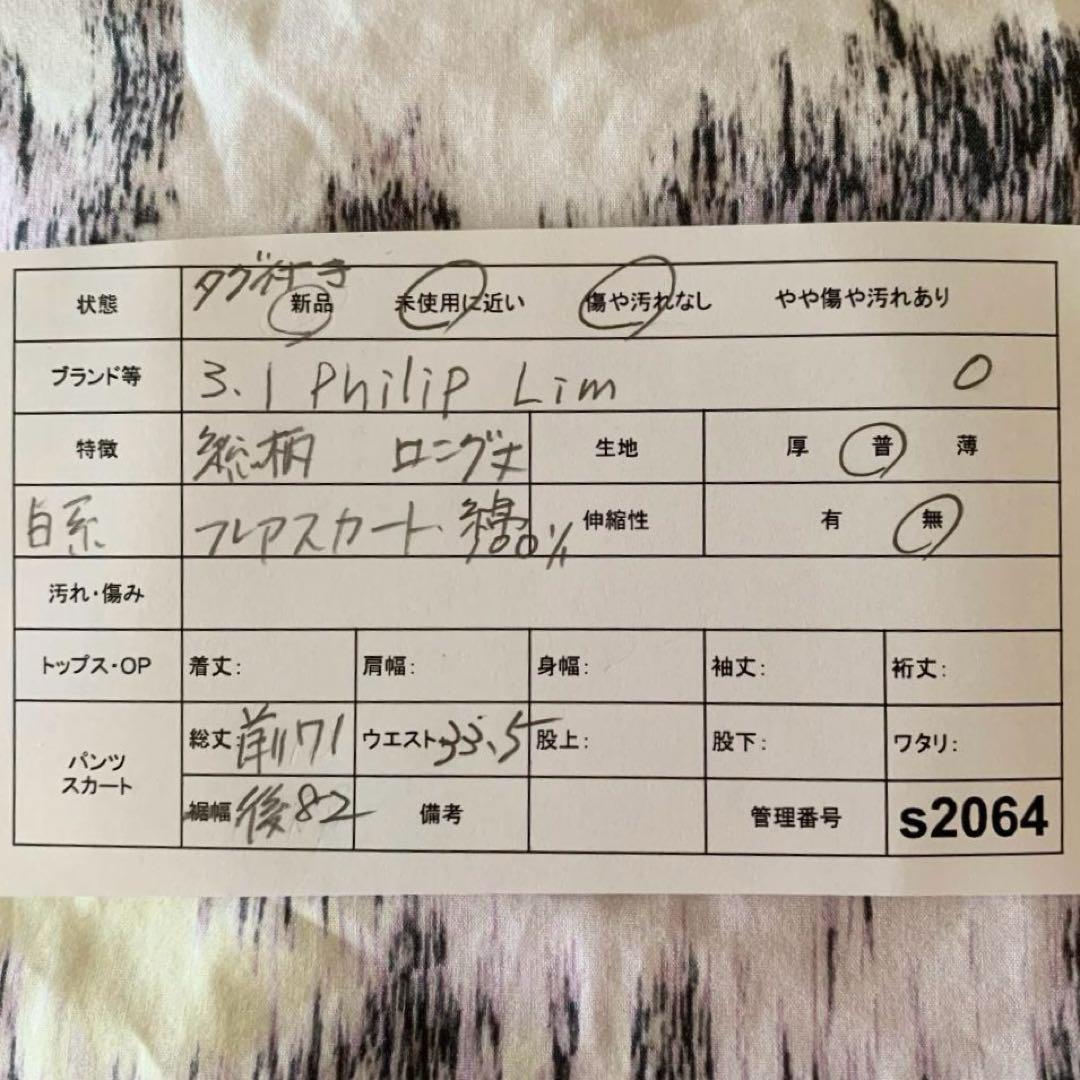 状態 タグ付き 新品 未使用に近い 傷や汚れなし やや傷や汚れあり
ブランド等 3.1 Philip Lim 0
特徴 総柄 ロング丈 生地 厚 普 薄
白系 フレアスカート 綿 伸縮性 有 無
汚れ・傷み
トップス・OP 着丈: 肩幅: 身幅: 袖丈: 裄丈:
パンツ スカート 総丈 前71 ウエスト 33.5 股上: 股下: ワタリ:
裾幅 後82 備考 管理番号 s2064